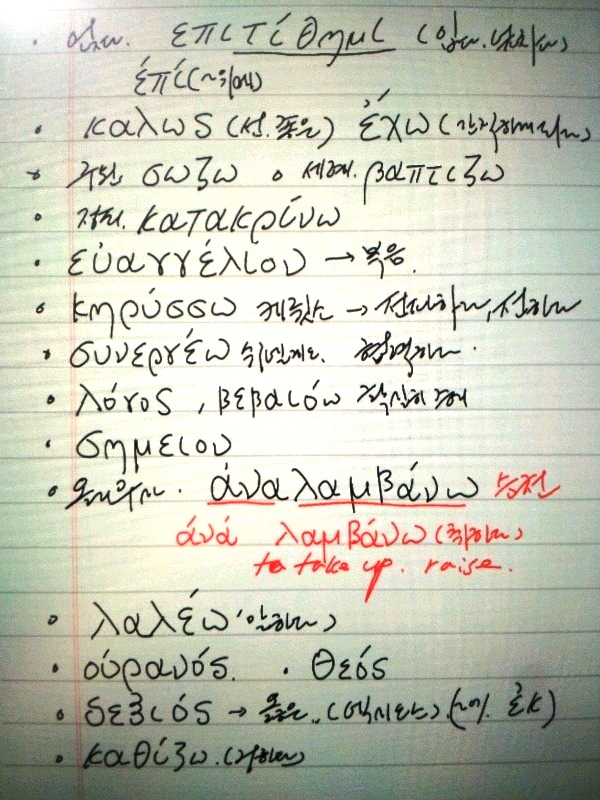 · 얹다. ἐπιτίθημι (얹다.
ἐπί (~위에)
· καλως (선. 좋은) ἔχω
· 구원 σωζω · 세례. βαπτιζω
· 정죄. κατακρίνω
· εὐαγγέλιον → 복음.
· κηρύσσω 케륏소 → 전파하다, 전하다
· συνεργέω 쉬넬게오. 협력하다.
· λόγος, βεβαιόω 확실히
· σημειον
· ἀναλαμβάνω 승천
ἀνά λαμβάνω (취하다)
to take up. raise.
· λαλέω (말하다)
· οὐρανός. · θεός
· δεξιός → 옳은.. (덱시오스). (~에. ἐκ)
· καθίζω.